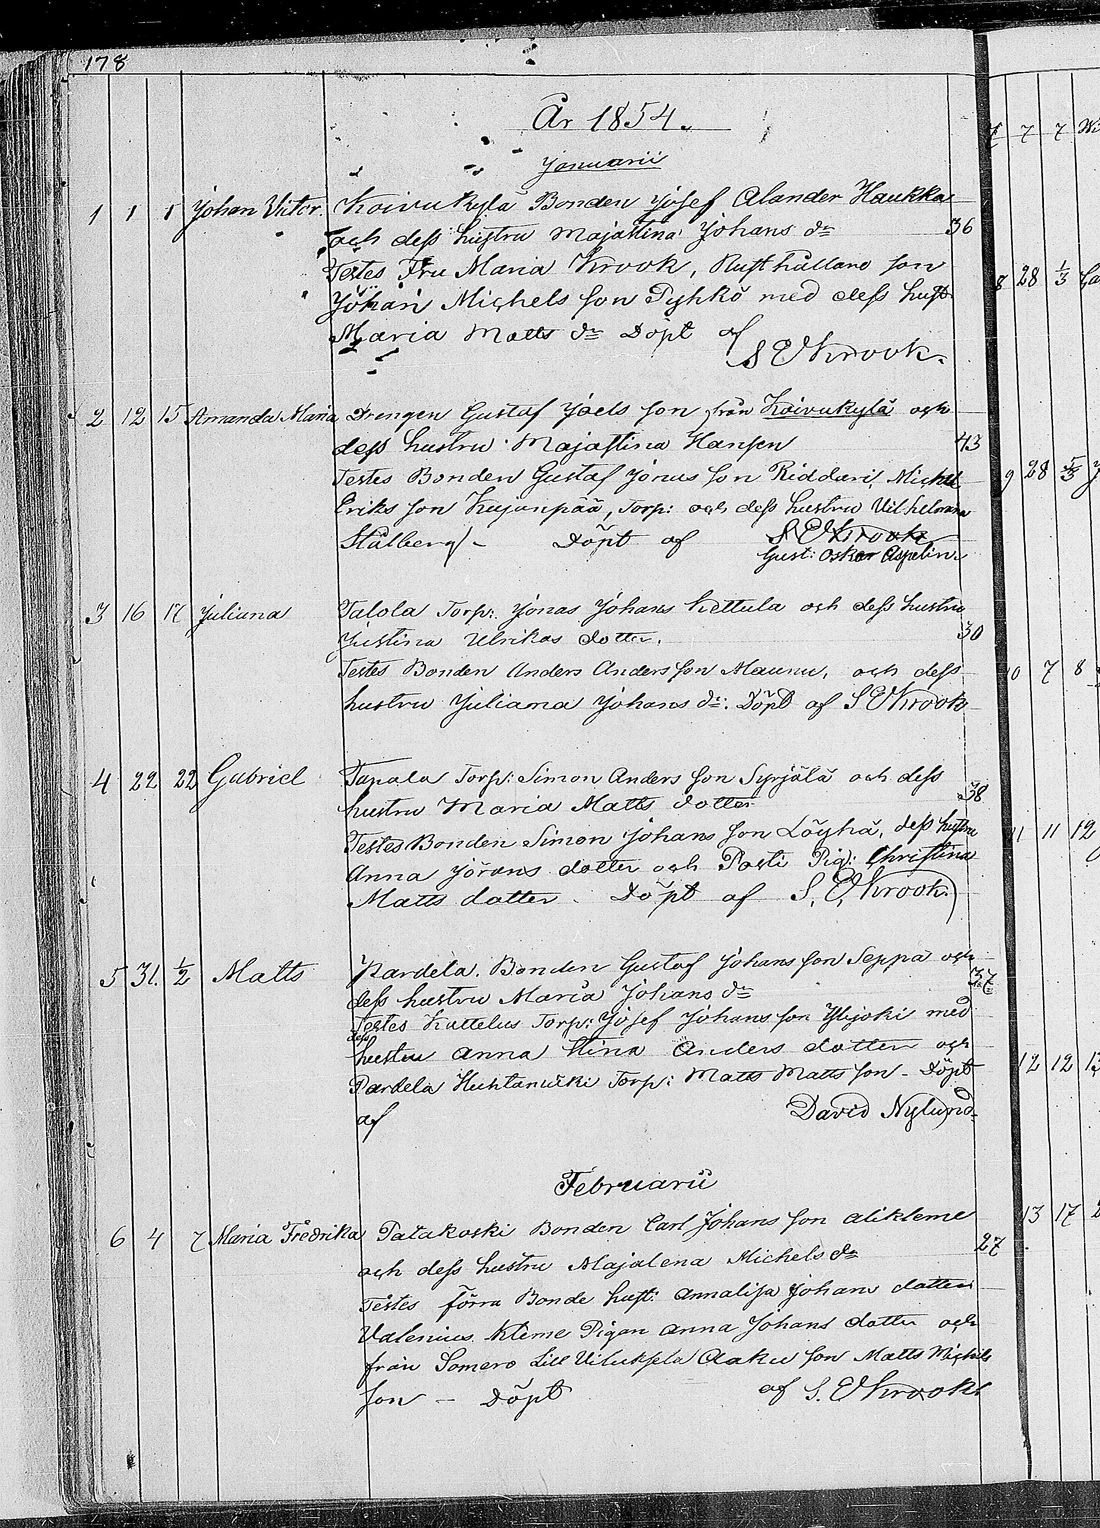 178
År 1854.
Januarii
1 1 1 Johan Viktor. Koivukylä Bonden Josef Alander Haukka
och dess hustru Majastina Johans dr 36
Testes Fru Maria Krook, Rusthålland son
Johan Michels son Pyhkö med dess hust
Maria Matts dr Döpt af
S E Krook.
2 12 15 Amanda Maria Drengen Gustaf Joels son från Koivukylä och
dess hustru Majastina Hansen 43
Testes Bonden Gustaf Jonas son Riddari, Michel
Eriks son Kujanpää, Torp: och dess hustru Vilhelmina
Stålberg - Döpt af S E Krook
Gust: Oskar Aspelin.
3 16 17 Juliana Talola Torp: Jonas Johans Kettula och dess hustru
Justina Ulrikas dotter. 30
Testes Bonden Anders Anders son Maunu, och dess
hustru Juliana Johans dr: Döpt af S E Krook
4 22 22 Gabriel Tapala Torp: Simon Anders son Syrjälä och dess
hustru Maria Matts dotter 38
Testes Bonden Simon Johans son Löyhä, dess hustru
Anna Jörans dotter och Posti Pig: Christina
Matts dotter. Döpt af S. E. Krook.
5 31. 1/2 Matts Pardela. Bonden Gustaf Johans son Seppä och
dess hustru Maria Johans dr 37
Testes Kuttelus Torp: Josef Johans son Ylijoki med
dess
hustru Anna Stina Anders dotter och
Pardela Huhtamäki Torp: Matts Matts son - Döpt
af David Nylund.
Februarii
6 4 7 Maria Fredrika Patakoski Bonden Carl Johans son Alikleme
och dess hustru Majalena Michels dr 27
Testes förra Bonde hust: Annalisa Johans dotter
Valenius. Kleme Pigan Anna Johans dotter och
från Somero Lill Viluksela Aaku son Matts Michels
son - Döpt af S. E Krook
7 7 7
8 28 1/3
9 28 5/3
10 7 8
11 11 12
12 12 13
13 17